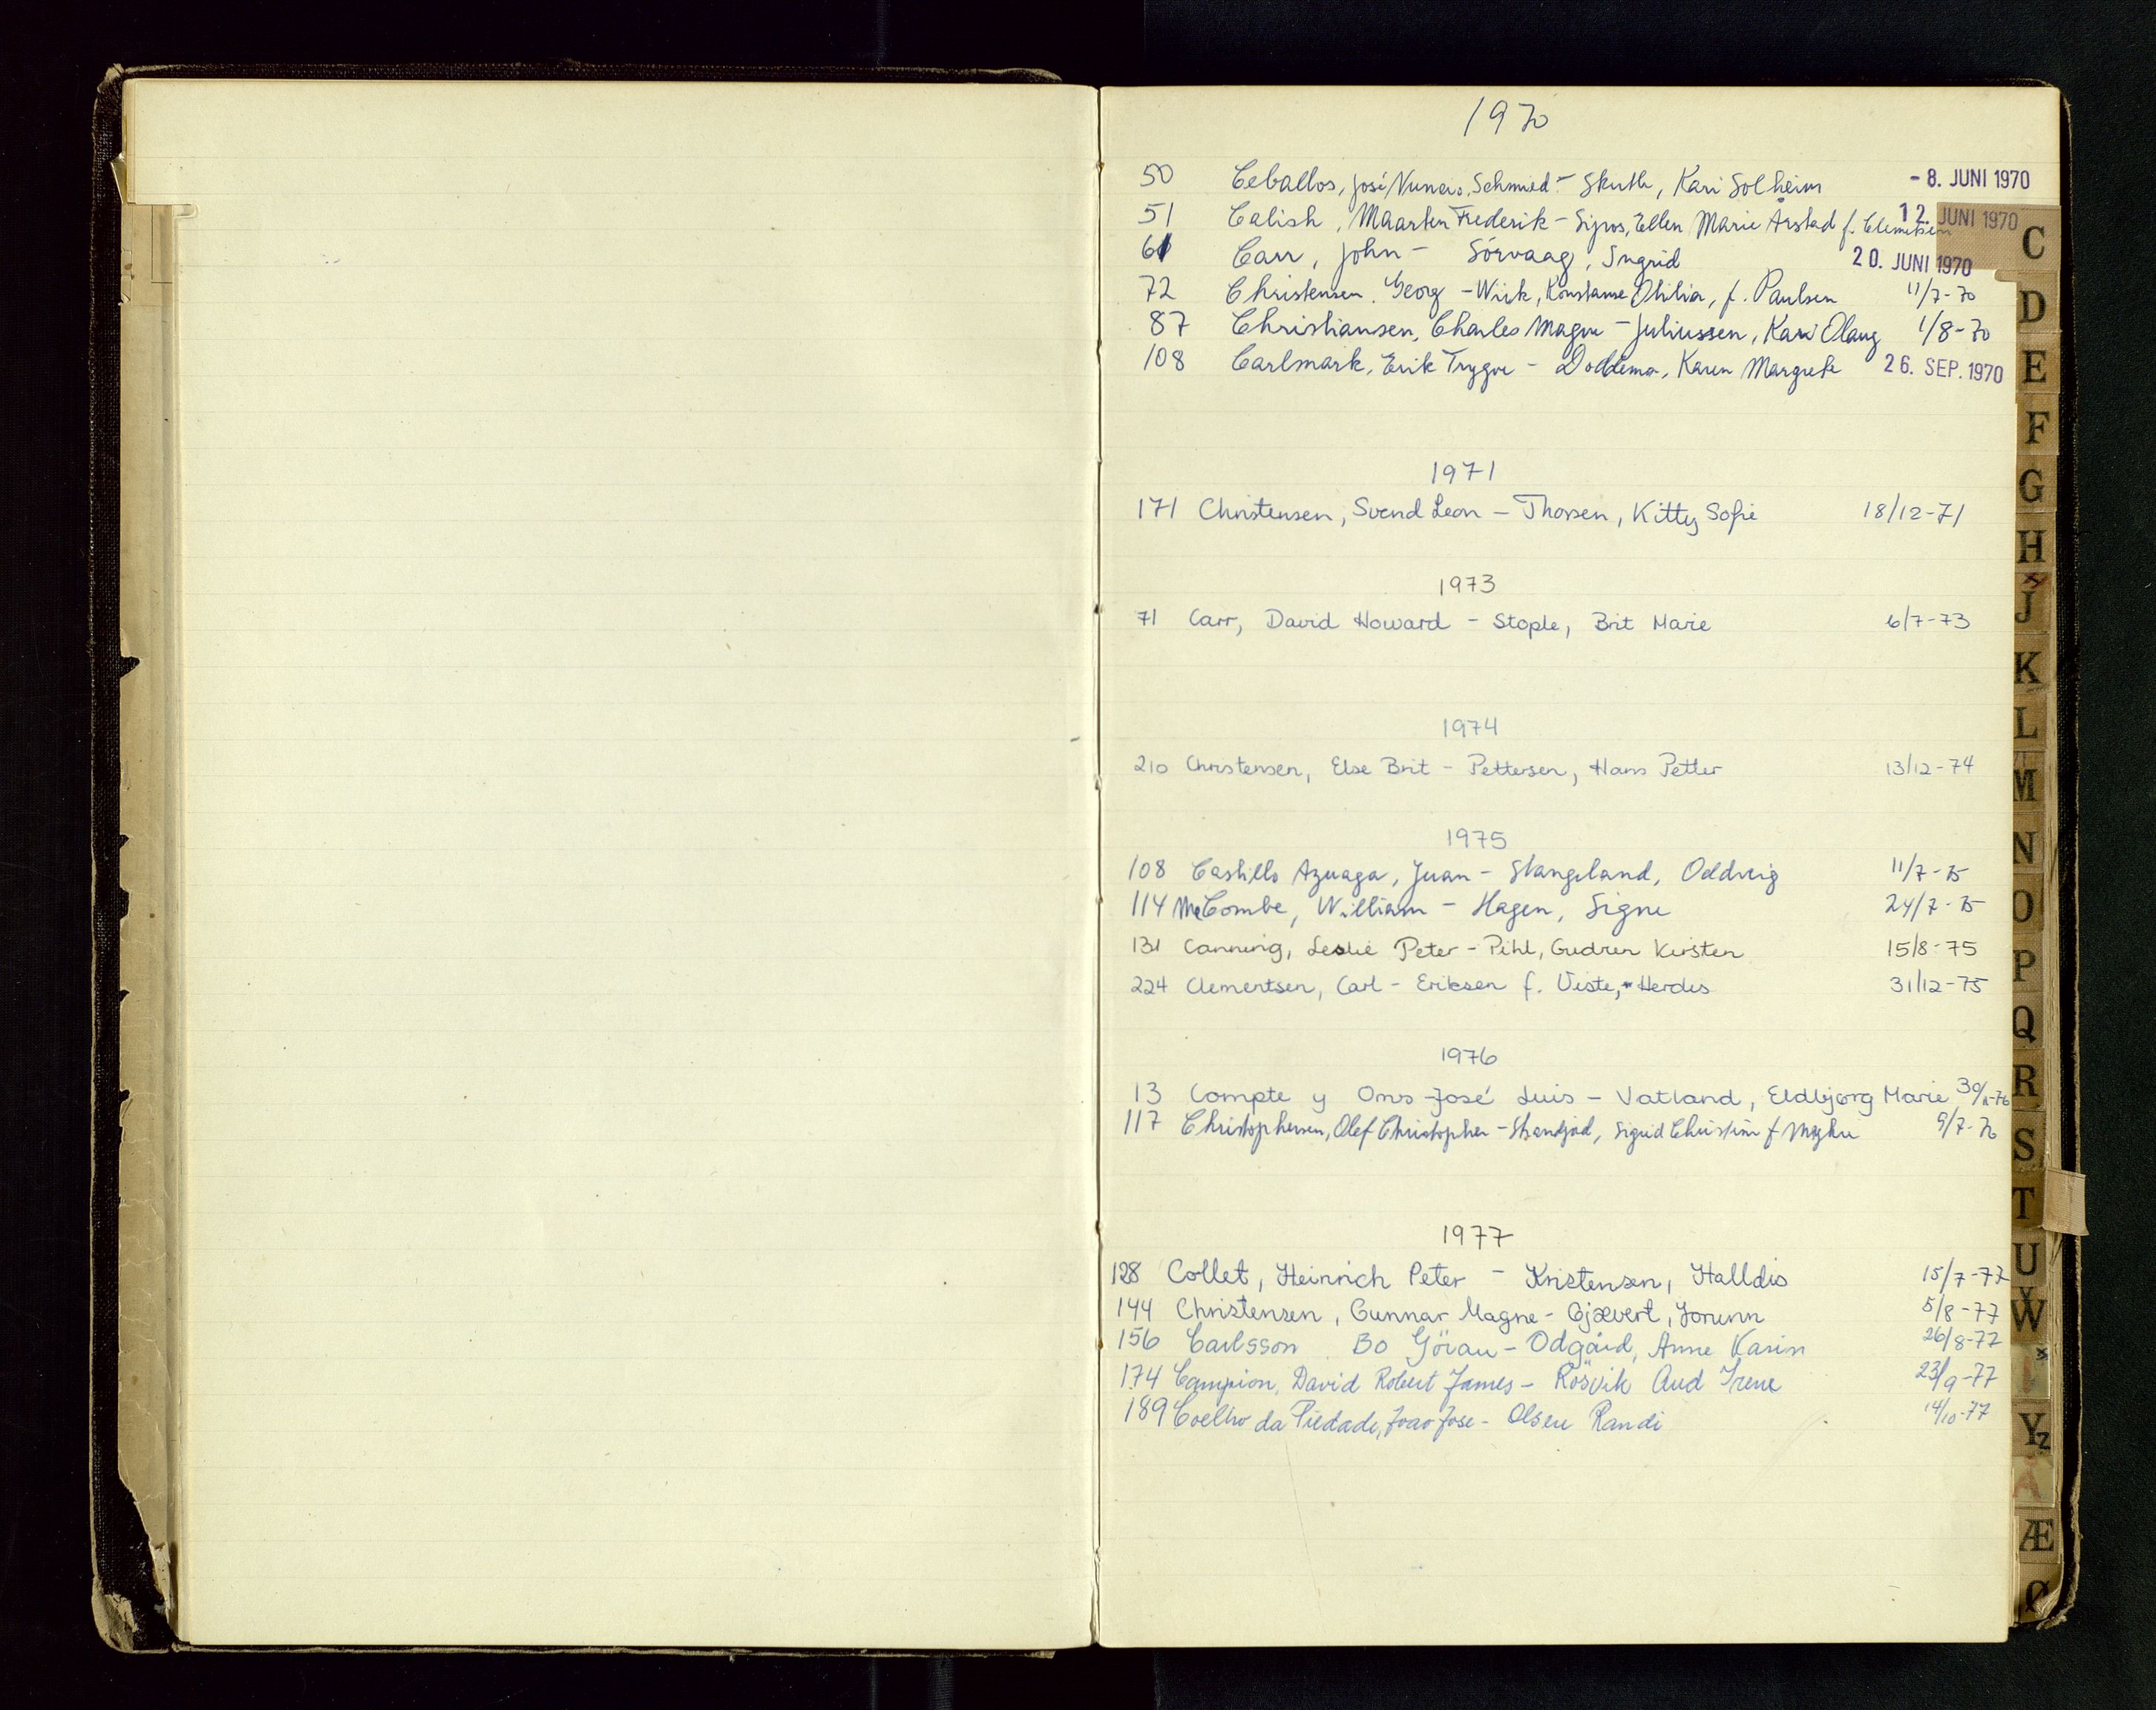 1970
50 Ceballos, José Nuncio, Schmied - Skutle, Kari Solheim -8. JUNI 1970
51 Calish, Maarten Frederik - Sijpos, Ellen Marie Årstad f. 12. JUNI 1970
61 Carr, John - Sörvaag, Ingrid 20. JUNI 1970
72 Christensen, Georg - Wiik, Konstanse Othilia, f. Paulsen 11/7-70
87 Christiansen, Charles Magne - Juliussen, Kari Olaug 1/8-70
108 Carlmark, Erik Trygve - Doddema, Karen Margrete 26. SEP. 1970
1971
171 Christensen, Svend Leon - Thorsen, Kitty Sofie 18/12-71
1973
71 Carr, David Howard - Stople, Brit Marie 6/7-73
1974
210 Christensen, Else Brit - Pettersen, Hans Petter 13/12-74
1975
108 Castillo Azuaga, Juan - Stangeland, Oddveig 11/7-75
114 McCombe, William - Hagen, Signe 24/7-75
131 Canning, Leslie Peter - Pihl, Gudrun Kirsten 15/8-75
224 Clementsen, Carl - Eriksen f. Viste, Herdis 31/12-75
1976
13 Compte y Oms José Luis - Vatland, Eldbjørg Marie
117 Christophersen, Olef Christopher - Strandjød, Sigrid Christine f 9/7-76
1977
128 Collet, Heinrich Peter - Kristensen, Halldis 15/7-77
144 Christensen, Gunnar Magne - Gjævert, Jorunn 5/8-77
156 Carlsson Bo Göran - Odgård, Anne Karin 26/8-77
174 Campion, David Robert James - Rösvik Aud Irene 23/9-77
189 Coelho da Piedade, Joao Jose - Olsen Randi 14/10-77
C
D
E
F
G
H
J
K
L
M
N
O
P
Q
R
S
T
U
W
Yz
Å
Æ
Ø